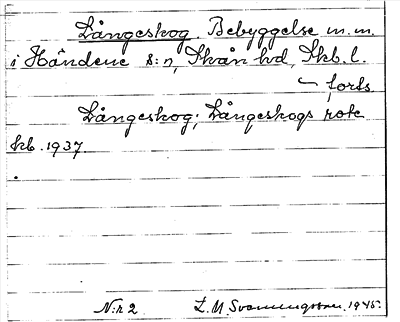 Långeskog. Bebyggelse m.m.
i Händene s:n, Skån hd, Skb. l.
forts
Långeskog; Långeskogs rote
kb. 1937.
N:r 2 L. M. Svenungsson. 1945.